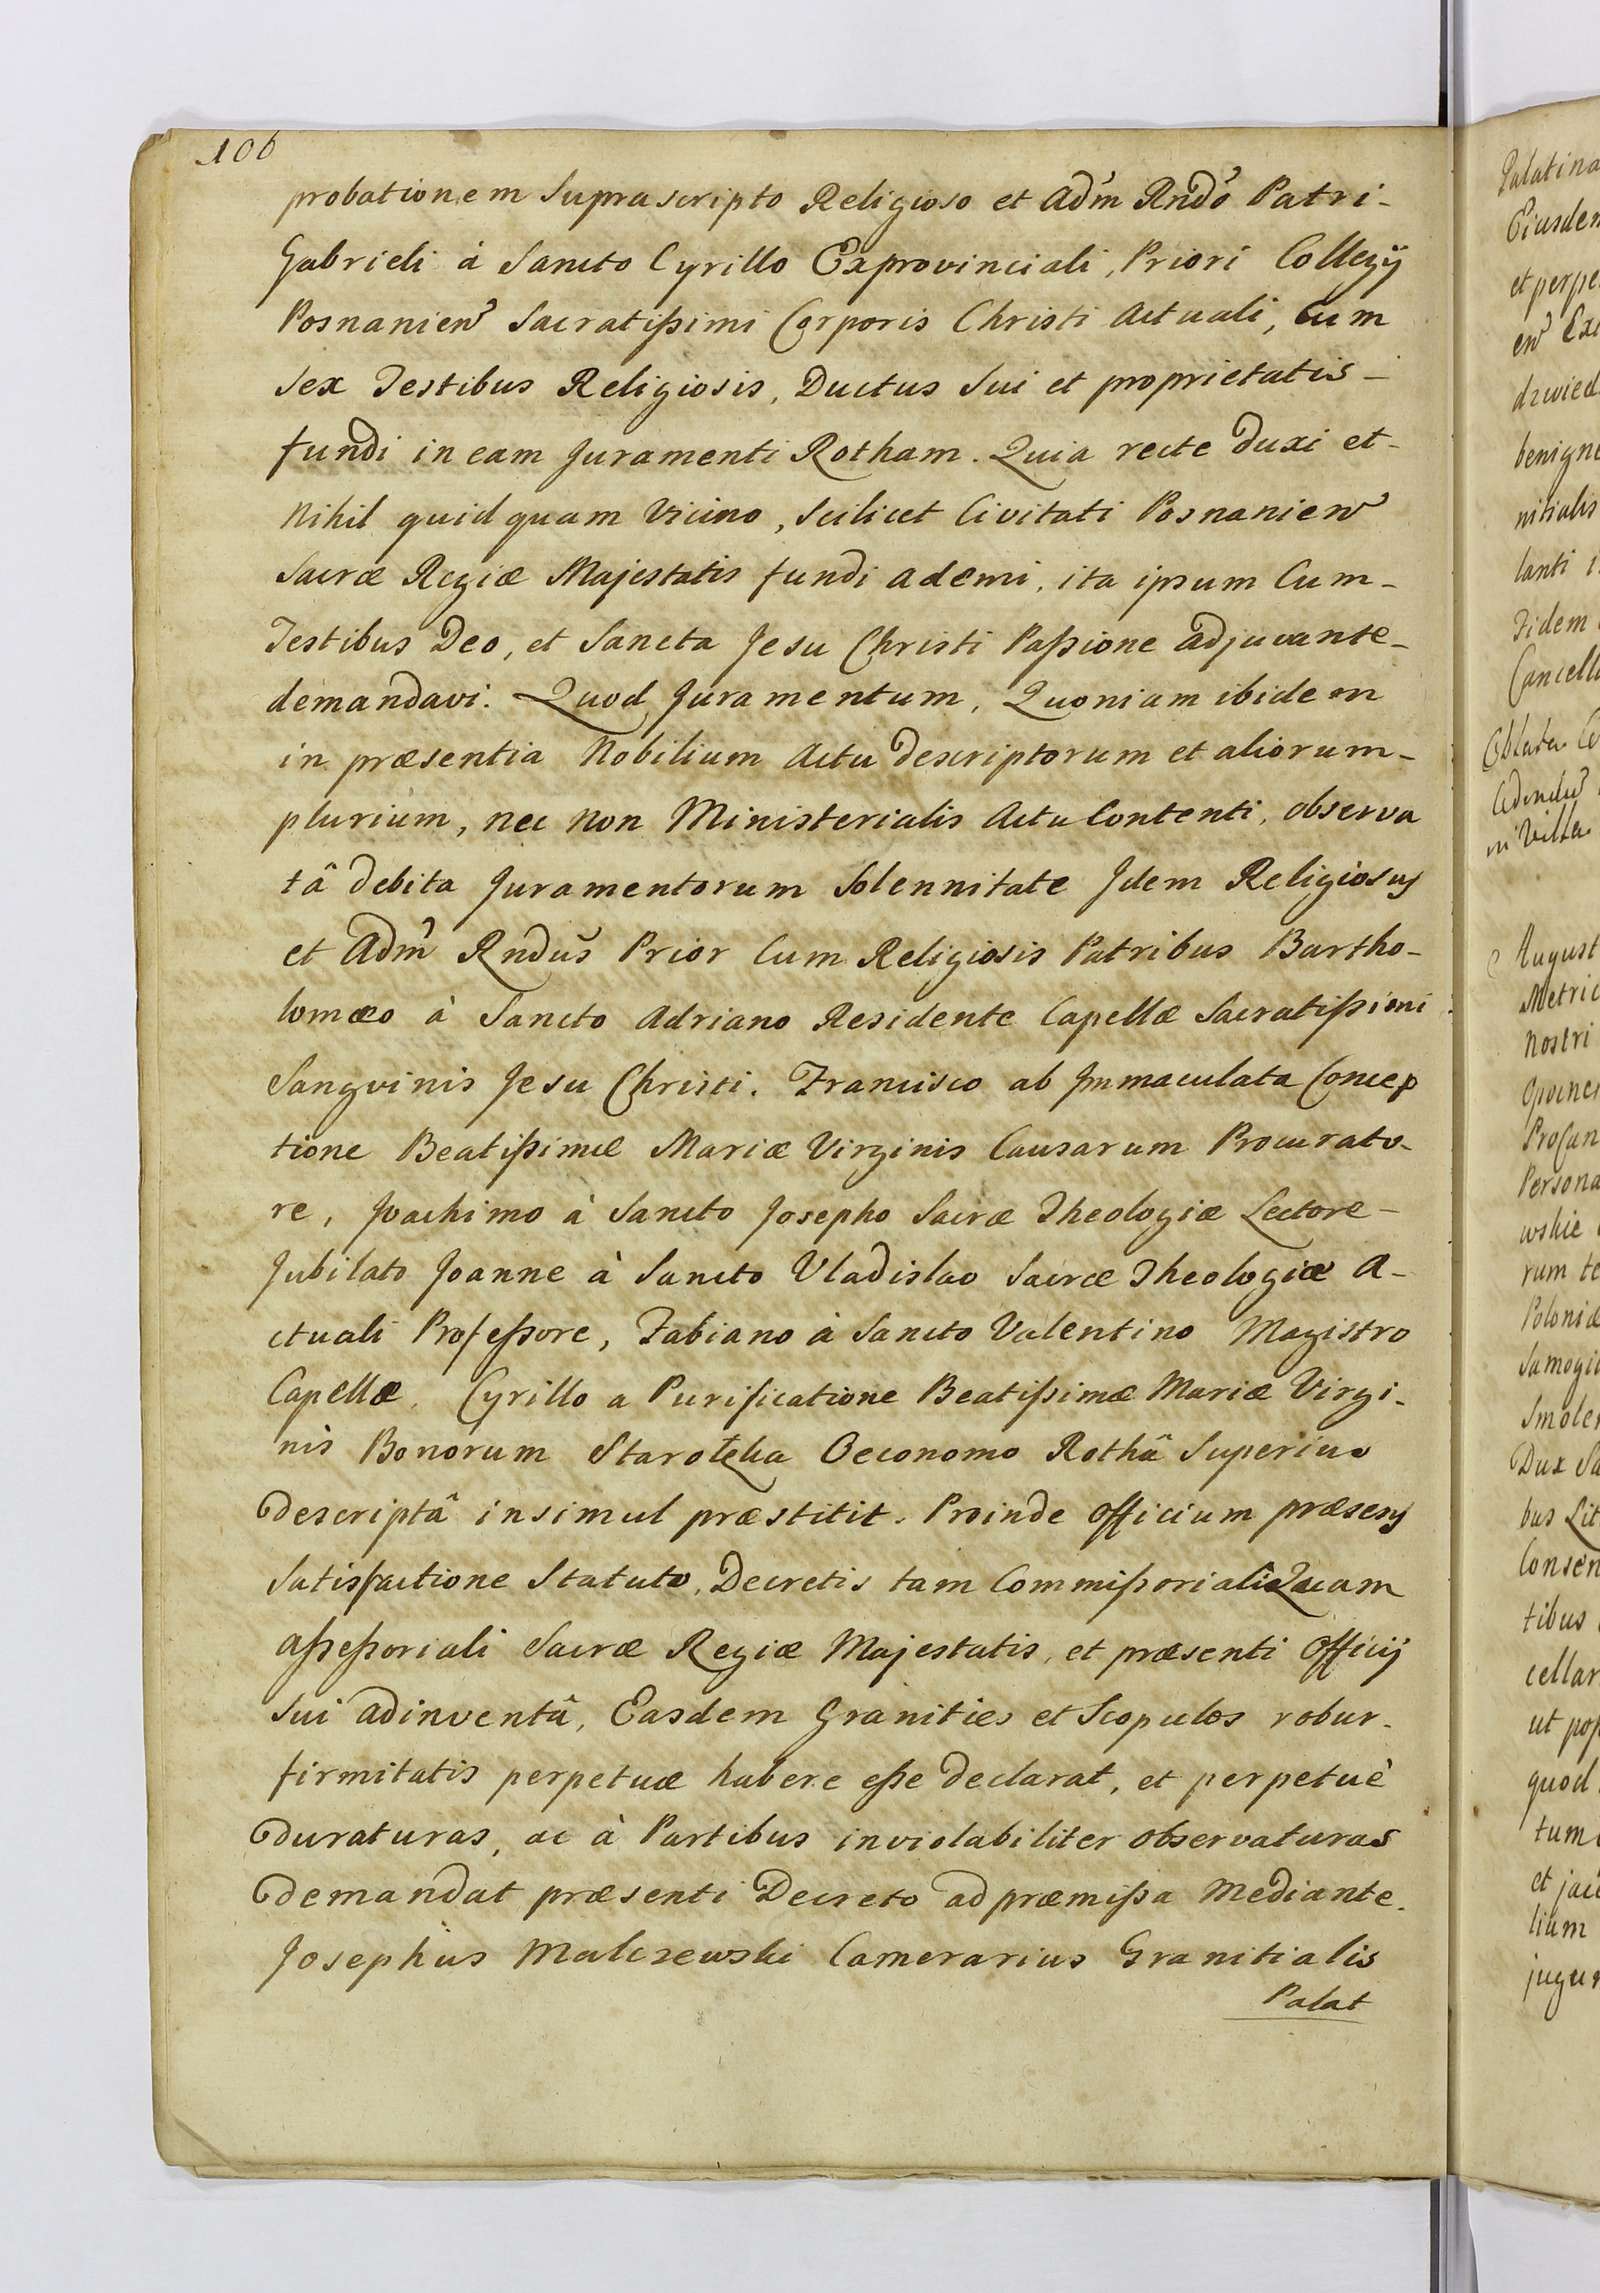 106
probationem Suprascripto Religioso et Adm̃ Rndõ Patri-
Gabrieli à Sancto Cyrillo Exprovinciali, Priori Collegÿ
Posnanien̄ Sacratißimi Corporis Christi Actuali, Cum
Sex Testibus Religiosis, Ductus Sui et proprietatis-
fundi in eam Juramenti Rotham. Quia recte duxi et-
Nihil quidquam Vicino, Scilicet Civitati Posnanien̄
Sacræ Regiæ Majestatis fundi ademi, ita ipsum Cum-
Testibus Deo, et Sancta Jesu Christi Paßione adjuvante-
demandavi. Quod Juramentum, Quoniam ibidem
in præsentia Nobilium Actu descriptorum et aliorum-
plurium, nec non Ministerialis Actu Contenti, observa
tâ debita Juramentorum Solennitate Idem Religiosus
et Adm̃ Rndũs Prior Cum Religiosis Patribus Bartho-
lomæo à Sancto Adriano Residente Capellæ Sacratißimi
Sangvinis Jesu Christi. Francisco ab Immaculata Concep
tione Beatißimæ Mariæ Virginis Causarum Procurato-
re, Joachimo à Sancto Josepho Sacræ Theologiæ Lectore-
Jubilato Joanne à Sancto Vladislao Sacræ Theologiæ A-
ctuali Profeßore, Fabiano à Sancto Valentino Magistro
Capellæ, Cyrillo a Purificatione Beatißimæ Mariæ Virgi-
nis Bonorum Starołęka Oeconomo Rothâ Superius
descriptâ insimul præstitit. Proinde Officium præsens
Satisfactione Statuto, Decretis tam Commißoriali Quam
aßeßoriali Sacræ Regiæ Majestatis, et præsenti Officij
Sui adinventâ, Easdem Granities et Scopulos robur-
firmitatis perpetuæ habere eße declarat, et perpetuè
duraturas, ac à Partibus inviolabiliter observaturas
demandat præsenti Decreto ad præmißa Mediante.
Josephus Malczewski Camerarius Granitialis
Palat
Palatina
Eiusdem
et perpe
en̄ Exc
benigne
nitialis
lanti
Fidem
Cancella
Oblata
in Villa
August
Metric
Nostri
Persona
wskie
rum te
Poloniæ
Samogit
Smolen
Dux Sa
bus Lit
Consen
tibus
cellar
ut poß
quod
tum
et jac
lium